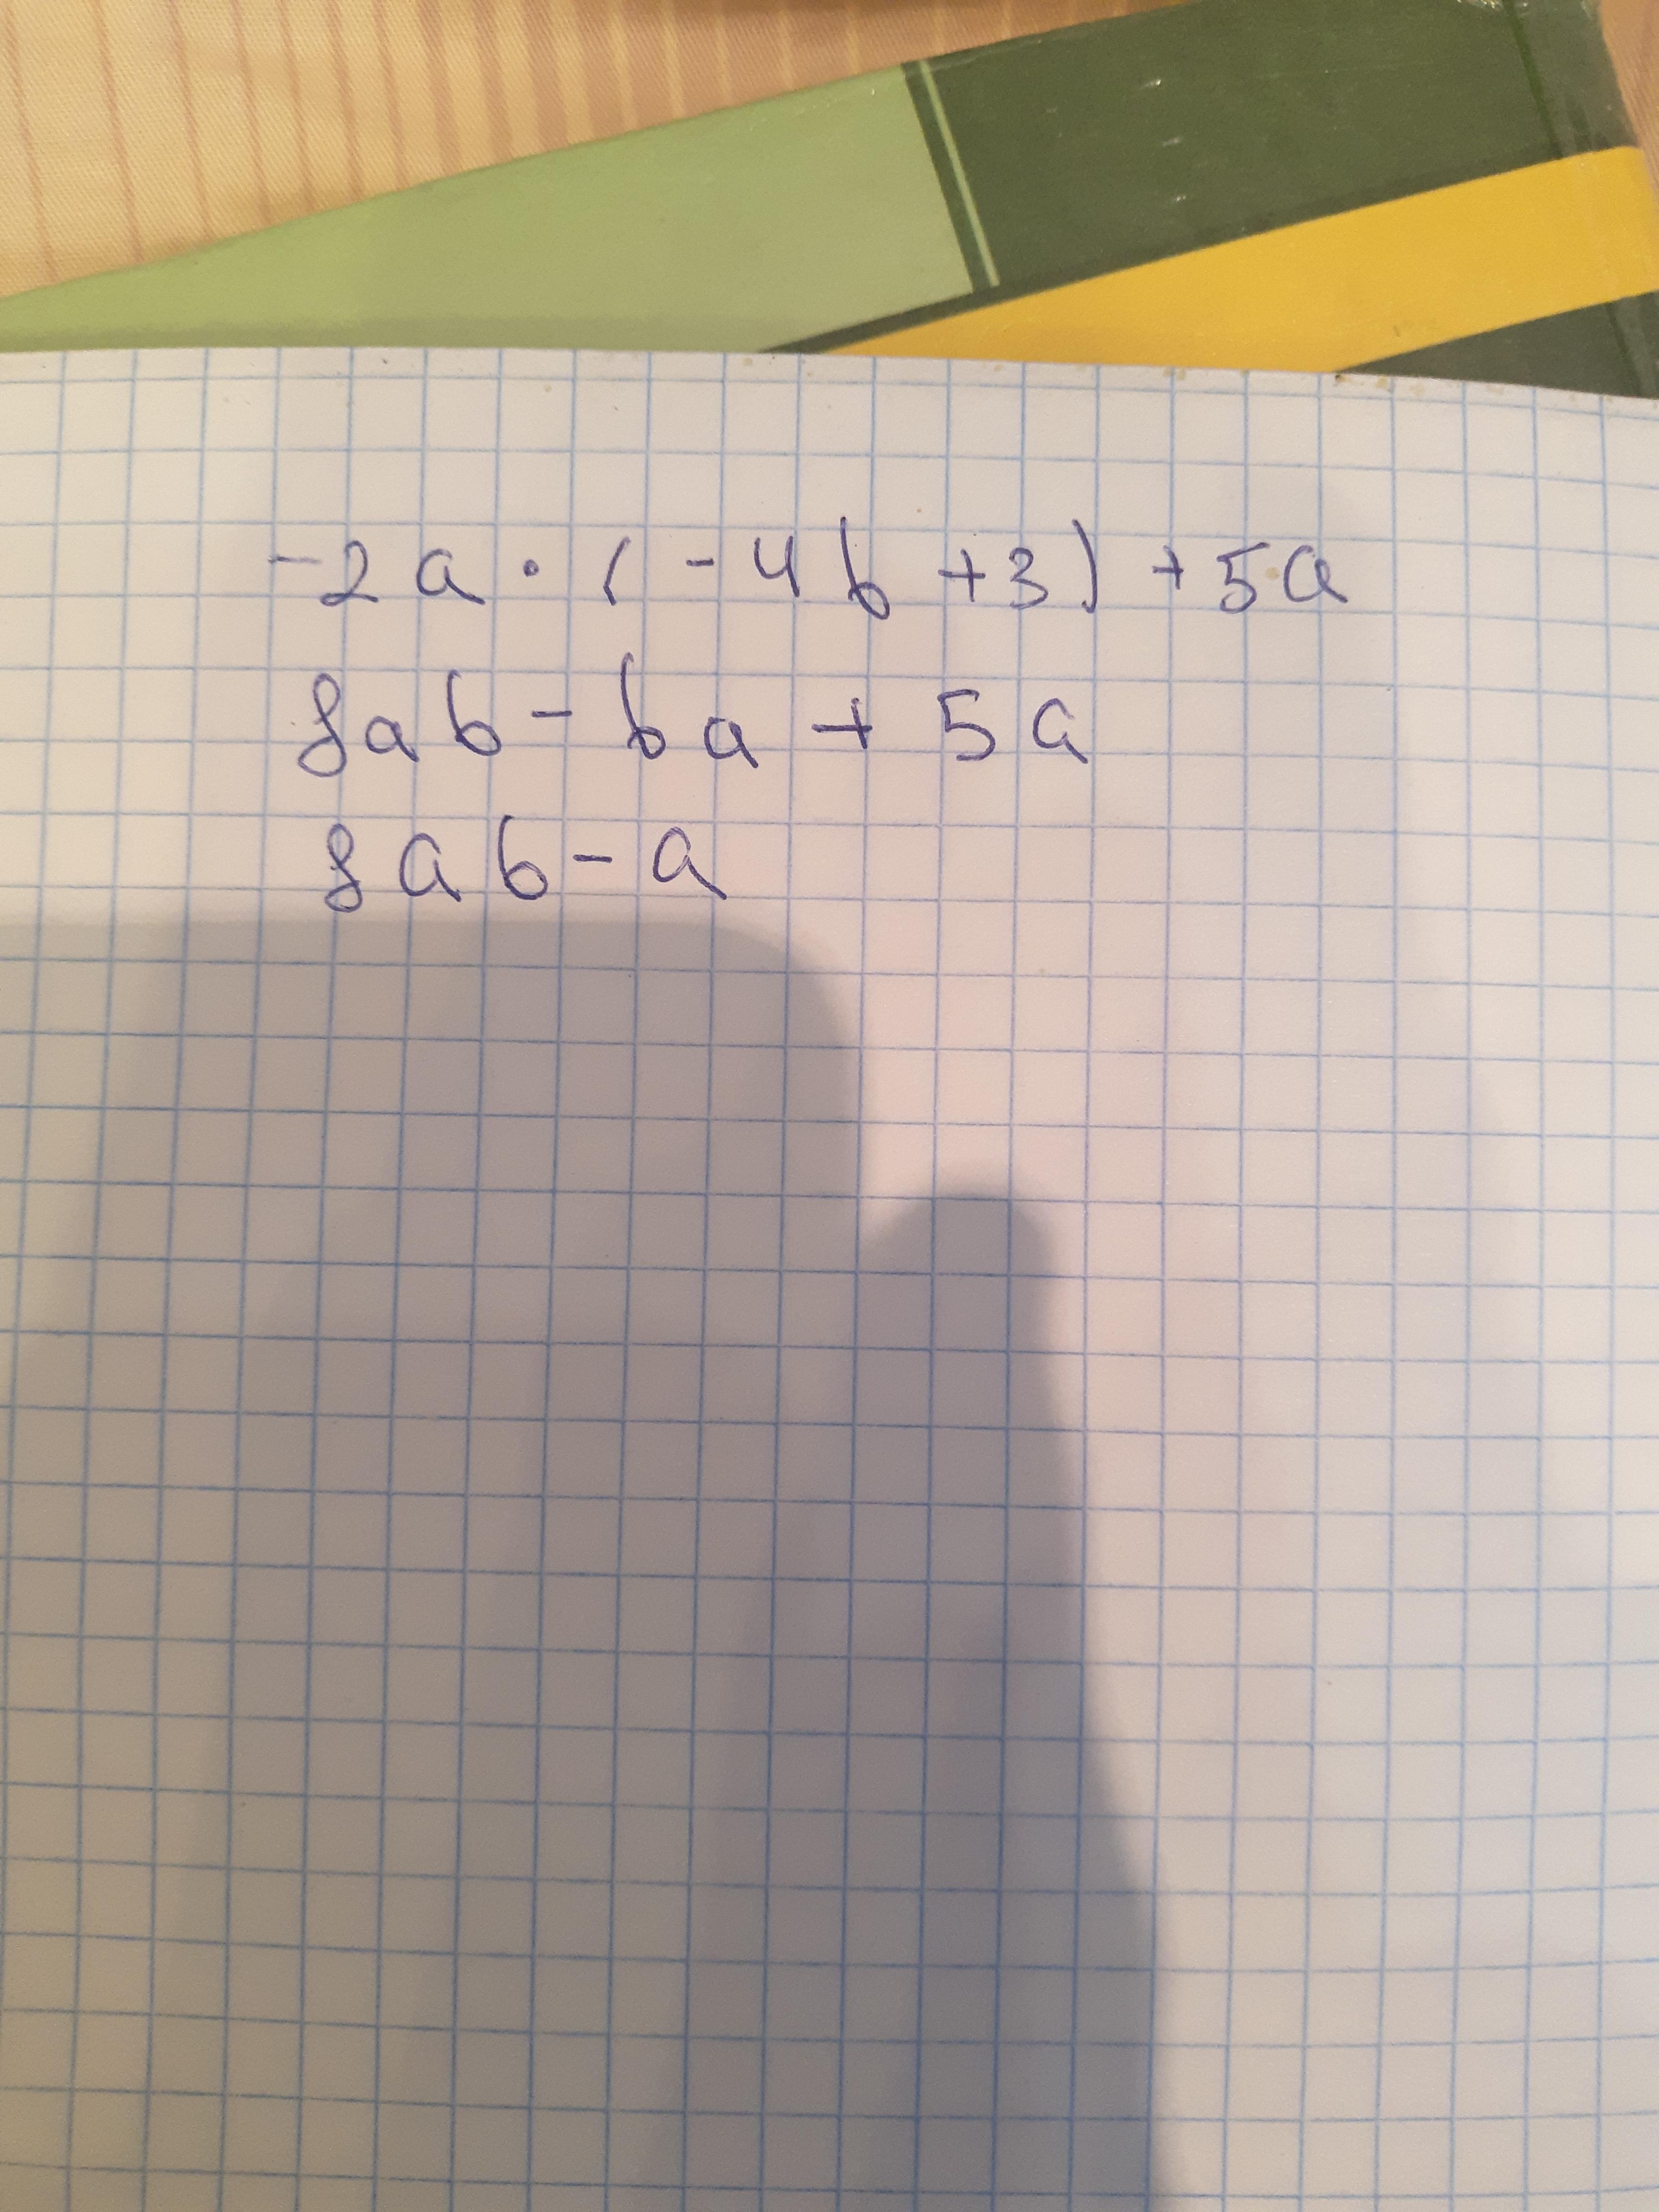 -2a · (-4b +3) +5a
8ab - 6a + 5a
8ab - a